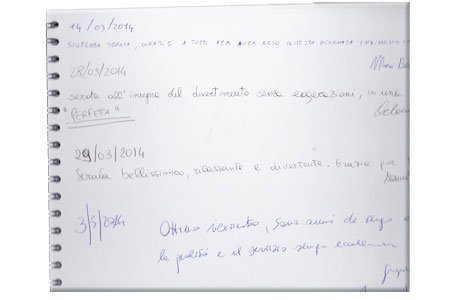 14/03/2014
STUPENDA SERATA, GRAZIE A TUTTI PER AVER RESO QUESTA GIORNATA
28/03/2014
serata all'insegna del divertimento senza esagerazioni, in una
"PERFETA"
29/03/2014
Serata bellissima, rilassante e divertente. Grazie per
3/5/2014
Ottimo ristorante, sono anni che vengo
la qualità e il servizio sempre eccellenti